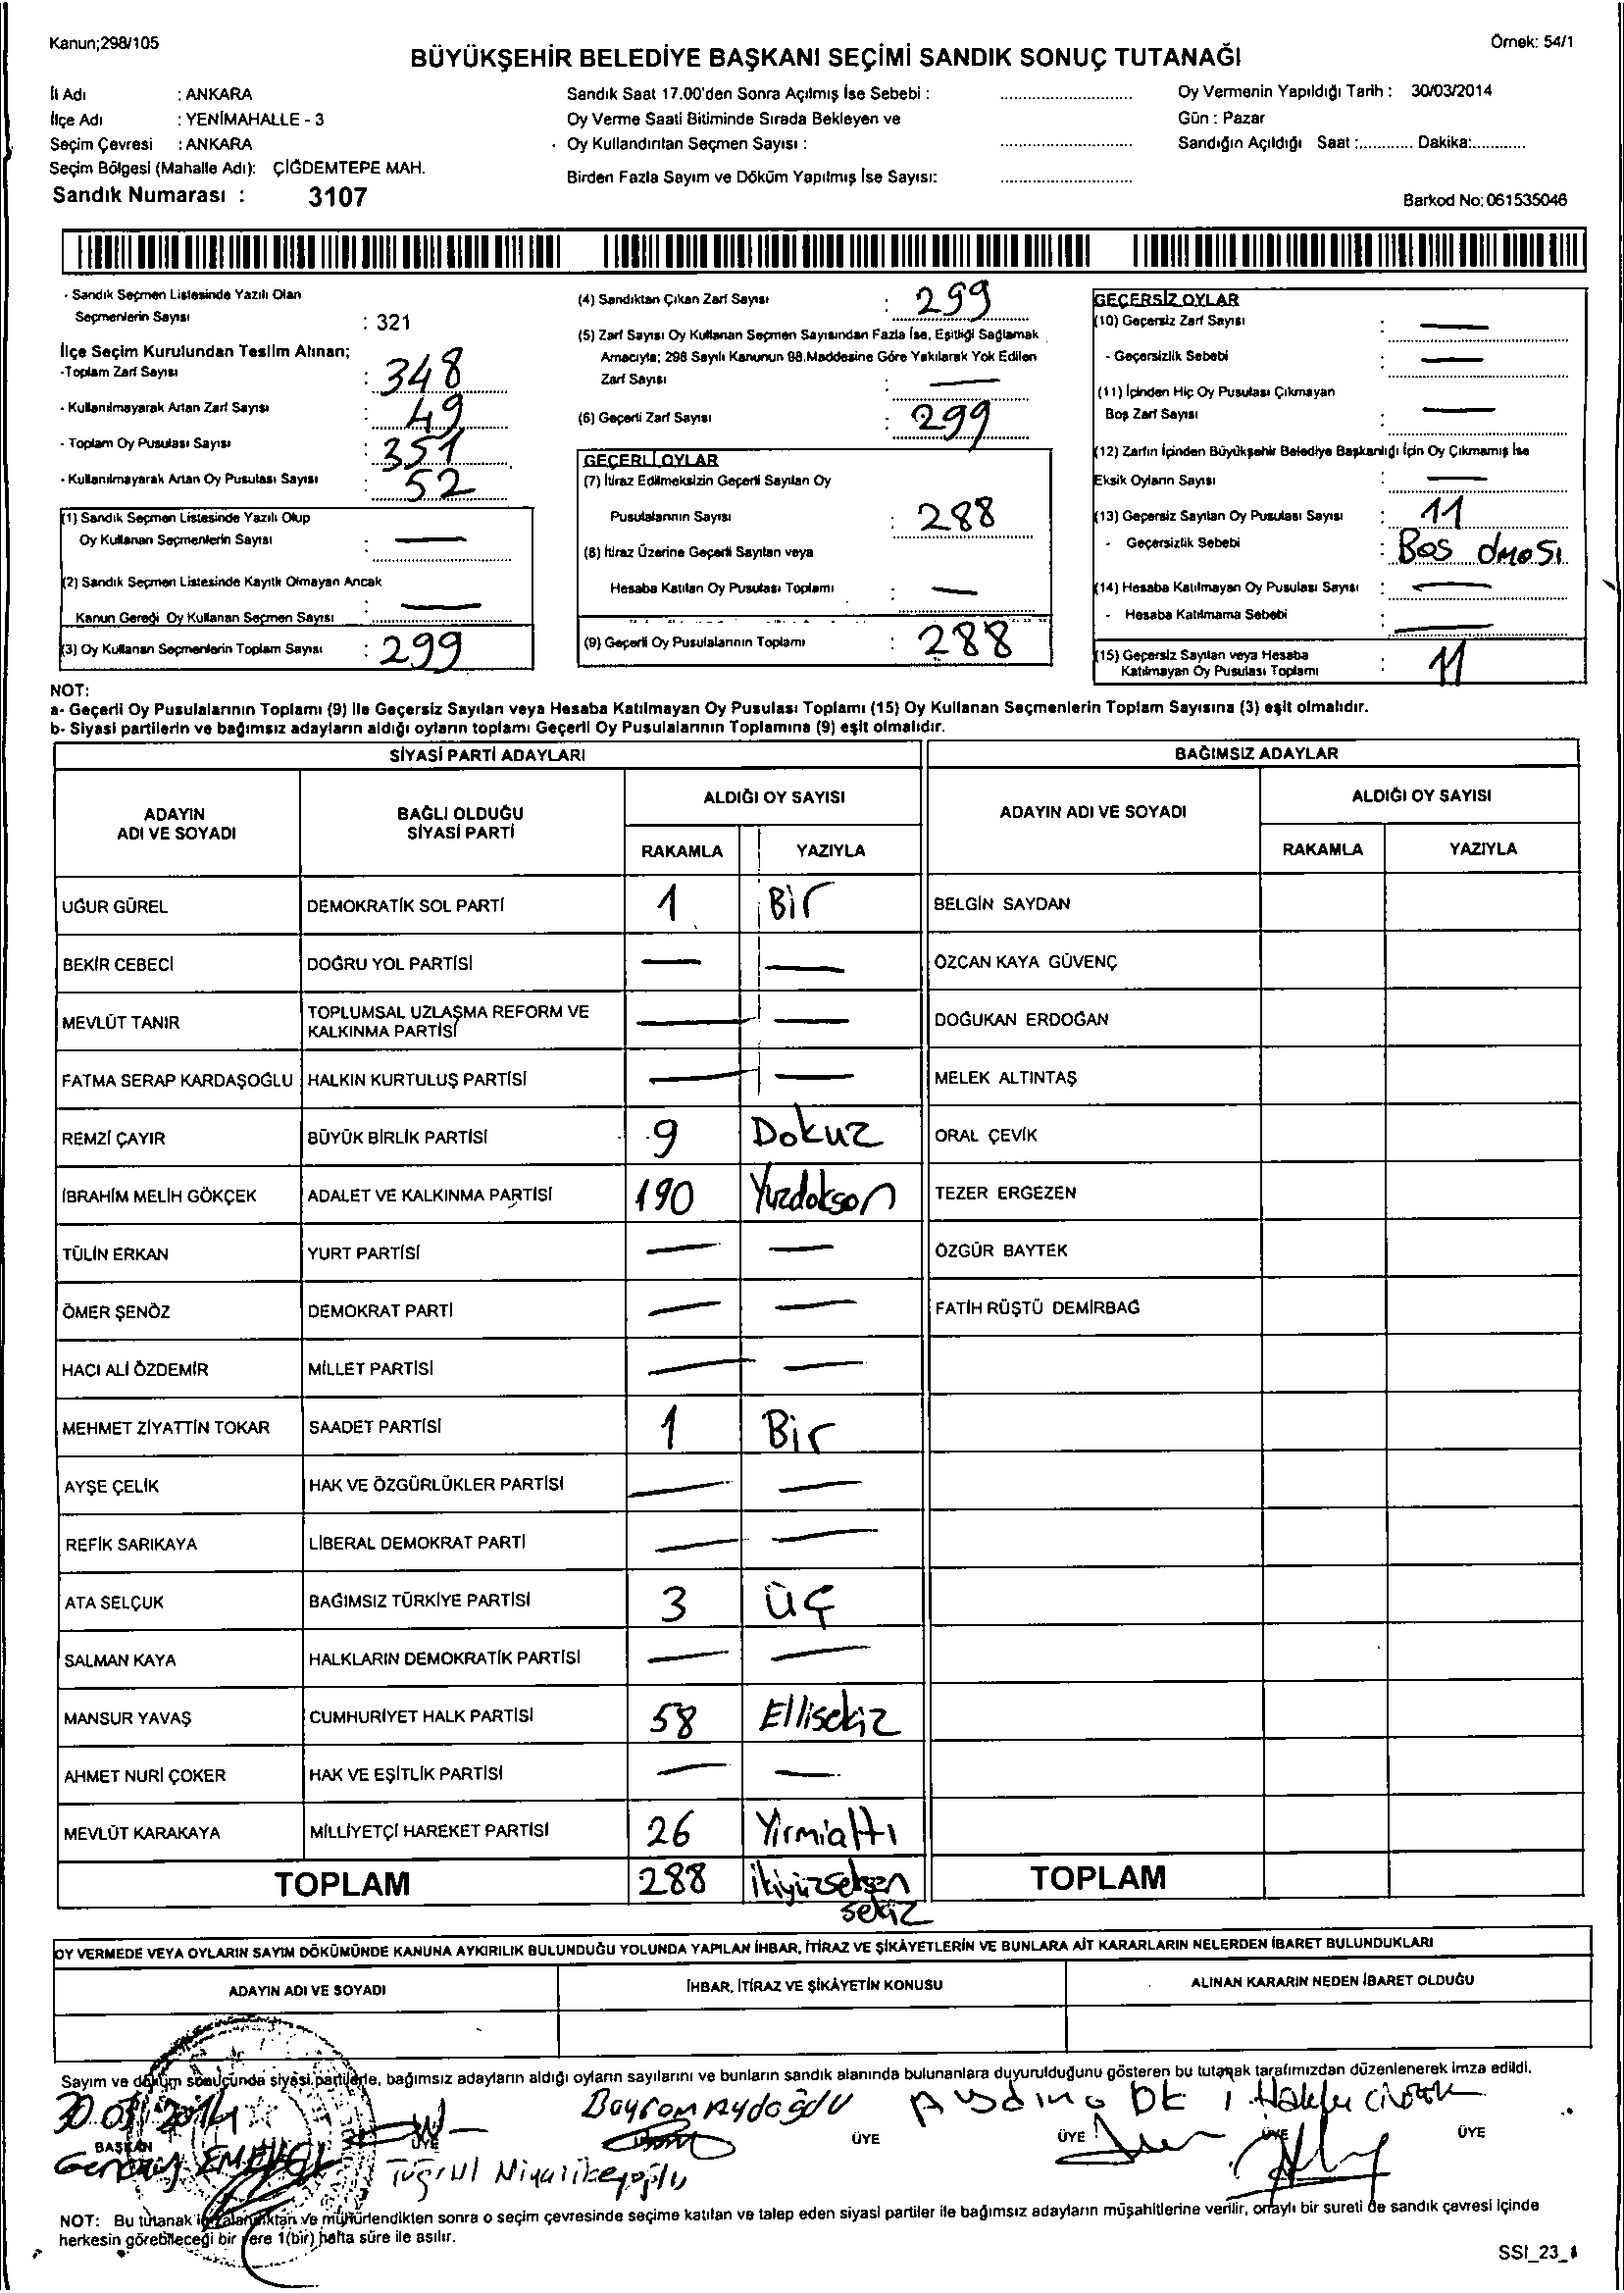 Kanun;298/105
Örnek: 54/1
BÜYÜKŞEHİR BELEDİYE BAŞKANI SEÇİMİ SANDIK SONUÇ TUTANAĞI
İl Adı : ANKARA
İlçe Adı : YENİMAHALLE - 3
Seçim Çevresi : ANKARA
Seçim Bölgesi (Mahalle Adı): ÇİĞDEMTEPE MAH.
Sandık Numarası : 3107
Sandık Saat 17.00'den Sonra Açılmış İse Sebebi :
Oy Verme Saati Bitiminde Sırada Bekleyen ve
Oy Kullandırılan Seçmen Sayısı :
Birden Fazla Sayım ve Döküm Yapılmış İse Sayısı:
Oy Vermenin Yapıldığı Tarih : 30/03/2014
Gün : Pazar
Sandığın Açıldığı Saat :............ Dakika:............
Barkod No: 061535046
- Sandık Seçmen Listesinde Yazılı Olan
Seçmenlerin Sayısı : 321
İlçe Seçim Kurulundan Teslim Alınan;
-Toplam Zarf Sayısı : 348
- Kullanılmayarak Artan Zarf Sayısı : 49
- Toplam Oy Pusulası Sayısı : 351
- Kullanılmayarak Artan Oy Pusulası Sayısı : 52
(1) Sandık Seçmen Listesinde Yazılı Olup
Oy Kullanan Seçmenlerin Sayısı : —
(2) Sandık Seçmen Listesinde Kayıtlı Olmayan Ancak
Kanun Gereği Oy Kullanan Seçmen Sayısı : —
(3) Oy Kullanan Seçmenlerin Toplam Sayısı : 299
(4) Sandıktan Çıkan Zarf Sayısı : 299
(5) Zarf Sayısı Oy Kullanan Seçmen Sayısından Fazla İse, Eşitliği Sağlamak
Amacıyla; 298 Sayılı Kanunun 98.Maddesine Göre Yakılarak Yok Edilen
Zarf Sayısı : —
(6) Geçerli Zarf Sayısı : 299
GEÇERLİ OYLAR
(7) İtiraz Edilmeksizin Geçerli Sayılan Oy
Pusulalarının Sayısı : 288
(8) İtiraz Üzerine Geçerli Sayılan veya
Hesaba Katılan Oy Pusulası Toplamı : —
(9) Geçerli Oy Pusulalarının Toplamı : 288
GEÇERSİZ OYLAR
(10) Geçersiz Zarf Sayısı : —
- Geçersizlik Sebebi : —
(11) İçinden Hiç Oy Pusulası Çıkmayan
Boş Zarf Sayısı : —
(12) Zarfın İçinden Büyükşehir Belediye Başkanlığı İçin Oy Çıkmamış İse
Eksik Oyların Sayısı : —
(13) Geçersiz Sayılan Oy Pusulası Sayısı : 11
- Geçersizlik Sebebi : Bos olması
(14) Hesaba Katılmayan Oy Pusulası Sayısı : —
- Hesaba Katılmama Sebebi : —
(15) Geçersiz Sayılan veya Hesaba
Katılmayan Oy Pusulası Toplamı : 11
NOT:
a- Geçerli Oy Pusulalarının Toplamı (9) ile Geçersiz Sayılan veya Hesaba Katılmayan Oy Pusulası Toplamı (15) Oy Kullanan Seçmenlerin Toplam Sayısına (3) eşit olmalıdır.
b- Siyasi partilerin ve bağımsız adayların aldığı oyların toplamı Geçerli Oy Pusulalarının Toplamına (9) eşit olmalıdır.
SİYASİ PARTİ ADAYLARI BAĞIMSIZ ADAYLAR
ADAYIN
ADI VE SOYADI
BAĞLI OLDUĞU
SİYASİ PARTİ
ALDIĞI OY SAYISI
RAKAMLA YAZIYLA
ADAYIN ADI VE SOYADI
ALDIĞI OY SAYISI
RAKAMLA YAZIYLA
UĞUR GÜREL DEMOKRATİK SOL PARTİ 1 Bir BELGİN SAYDAN
BEKİR CEBECİ DOĞRU YOL PARTİSİ — — ÖZCAN KAYA GÜVENÇ
MEVLÜT TANIR TOPLUMSAL UZLAŞMA REFORM VE KALKINMA PARTİSİ — — DOĞUKAN ERDOĞAN
FATMA SERAP KARDAŞOĞLU HALKIN KURTULUŞ PARTİSİ — — MELEK ALTINTAŞ
REMZİ ÇAYIR BÜYÜK BİRLİK PARTİSİ 9 Dokuz ORAL ÇEVİK
İBRAHİM MELİH GÖKÇEK ADALET VE KALKINMA PARTİSİ 190 Yuzdokson TEZER ERGEZEN
TÜLİN ERKAN YURT PARTİSİ — — ÖZGÜR BAYTEK
ÖMER ŞENÖZ DEMOKRAT PARTİ — — FATİH RÜŞTÜ DEMİRBAĞ
HACI ALİ ÖZDEMİR MİLLET PARTİSİ — —
MEHMET ZİYATTİN TOKAR SAADET PARTİSİ 1 Bir
AYŞE ÇELİK HAK VE ÖZGÜRLÜKLER PARTİSİ — —
REFİK SARIKAYA LİBERAL DEMOKRAT PARTİ — —
ATA SELÇUK BAĞIMSIZ TÜRKİYE PARTİSİ 3 üç
SALMAN KAYA HALKLARIN DEMOKRATİK PARTİSİ — —
MANSUR YAVAŞ CUMHURİYET HALK PARTİSİ 58 Ellisekiz
AHMET NURİ ÇOKER HAK VE EŞİTLİK PARTİSİ — —
MEVLÜT KARAKAYA MİLLİYETÇİ HAREKET PARTİSİ 26 Yirmialtı
TOPLAM 288 ikiyüzseksen sekiz TOPLAM
OY VERMEDE VEYA OYLARIN SAYIM DÖKÜMÜNDE KANUNA AYKIRILIK BULUNDUĞU YOLUNDA YAPILAN İHBAR, İTİRAZ VE ŞİKÂYETLERİN VE BUNLARA AİT KARARLARIN NELERDEN İBARET BULUNDUKLARI
ADAYIN ADI VE SOYADI İHBAR, İTİRAZ VE ŞİKÂYETİN KONUSU ALINAN KARARIN NEDEN İBARET OLDUĞU
Sayım ve döküm sonuçunda siyasi partilerle, bağımsız adayların aldığı oyların sayılarını ve bunların sandık alanında bulunanlara duyurulduğunu gösteren bu tutanak tarafımızdan düzenlenerek imza edildi.
30.03.2014 Bayram Aydoğdu
BAŞKAN ÜYE ÜYE ÜYE ÜYE ÜYE
Tuğrul
NOT: Bu tutanak imzalandıktan ve mühürlendikten sonra o seçim çevresinde seçime katılan ve talep eden siyasi partiler ile bağımsız adayların müşahitlerine verilir, onaylı bir sureti de sandık çevresi içinde
herkesin görebileceği bir yere 1(bir) hafta süre ile asılır.
SSI_23_1